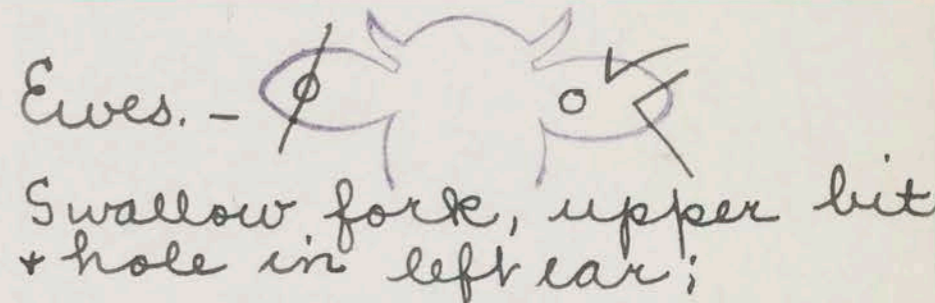 Ewes. -
Swallow fork, upper bit
+ hole in left ear;